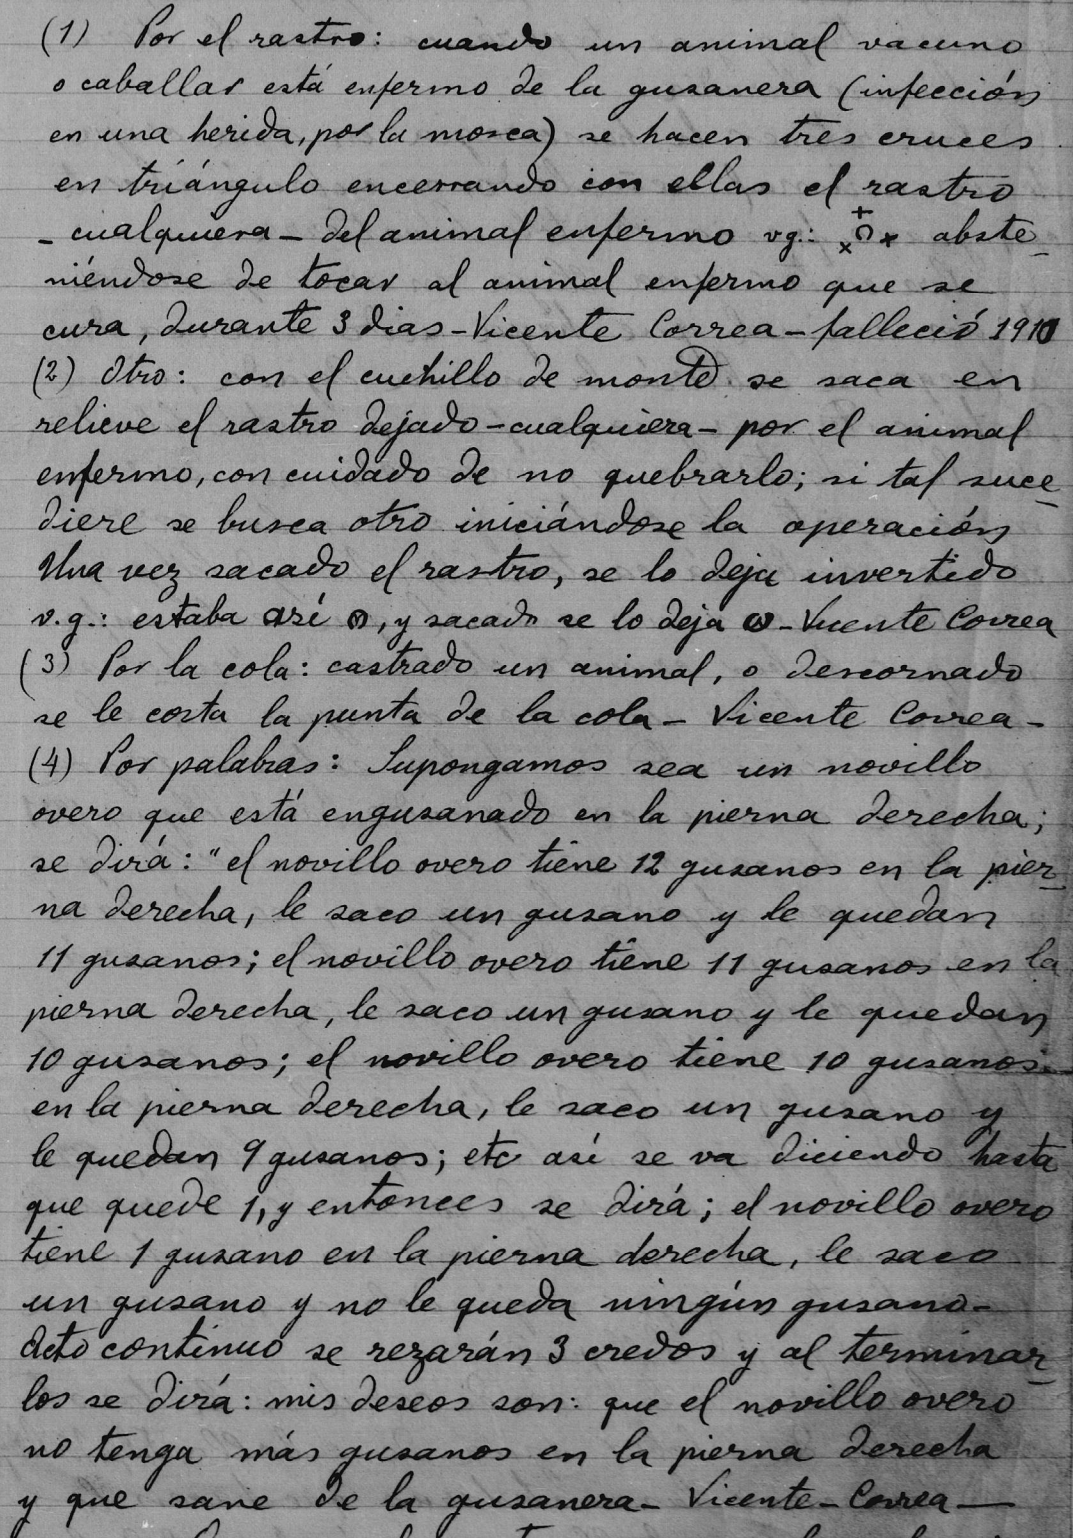 (1) Por el rastro: cuando un animal vacuno
o caballar está enfermo de la gusanera (infección
en una herida, por la mosca) se hacen tres cruces
en tríángulo encerrando con ellas el rastro
- cualquiera - del animal enfermo vg.: abste_
niéndose de tocar al animal enfermo que se
cura, durante 3 dias - Vicente Correa - falleció 1910
(2) Otro: con el cuchillo de monte se saca en
relieve el rastro dejado - cualquiera - por el animal
enfermo, con cuidado de no quebrarlo; si tal suce_
diere se busca otro iniciándose la operación
Una vez sacado el rastro, se lo deja invertido
v.g.: estaba así , y sacado se lo deja - Vicente Correa
(3) Por la cola: castrado un animal, o descornado
se le corta la punta de la cola - Vicente Correa -
(4) Por palabras: Supongamos sea un novillo
overo que está engusanado en la pierna derecha;
se dirá: "el novillo overo tiene 12 gusanos en la pier_
na derecha, le saco un gusano y le quedan
11 gusanos; el novillo overo tiene 11 gusanos en la
pierna derecha, le saco un gusano y le quedan
10 gusanos; el novillo overo tiene 10 gusanos
en la pierna derecha, le saco un gusano y
le quedan 9 gusanos; etc así se va diciendo hasta
que quede 1, y entonces se dirá; el novillo overo
tiene 1 gusano en la pierna derecha, le saco
un gusano y no le queda ningún gusano -
Acto continuo se rezarán 3 credos y al terminar_
los se dirá: mis deseos son: que el novillo overo
no tenga más gusanos en la pierna derecha
y que sane de la gusanera - Vicente - Correa -